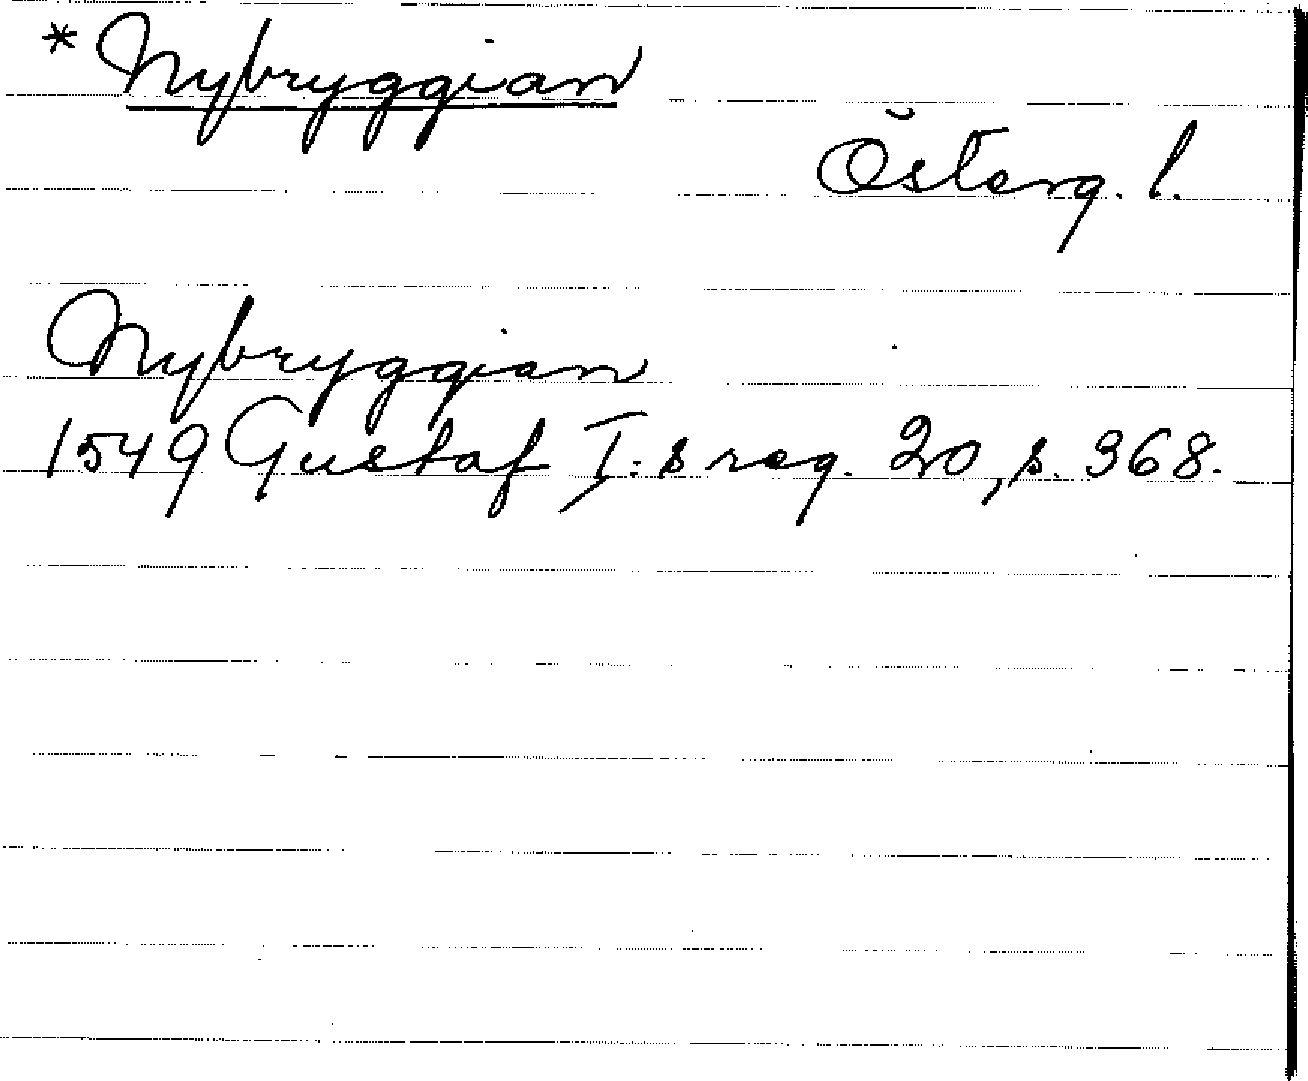 * Nybryggian
Österg. l.
Nybryggian
1549 Gustaf I:s reg. 20, s. 368.